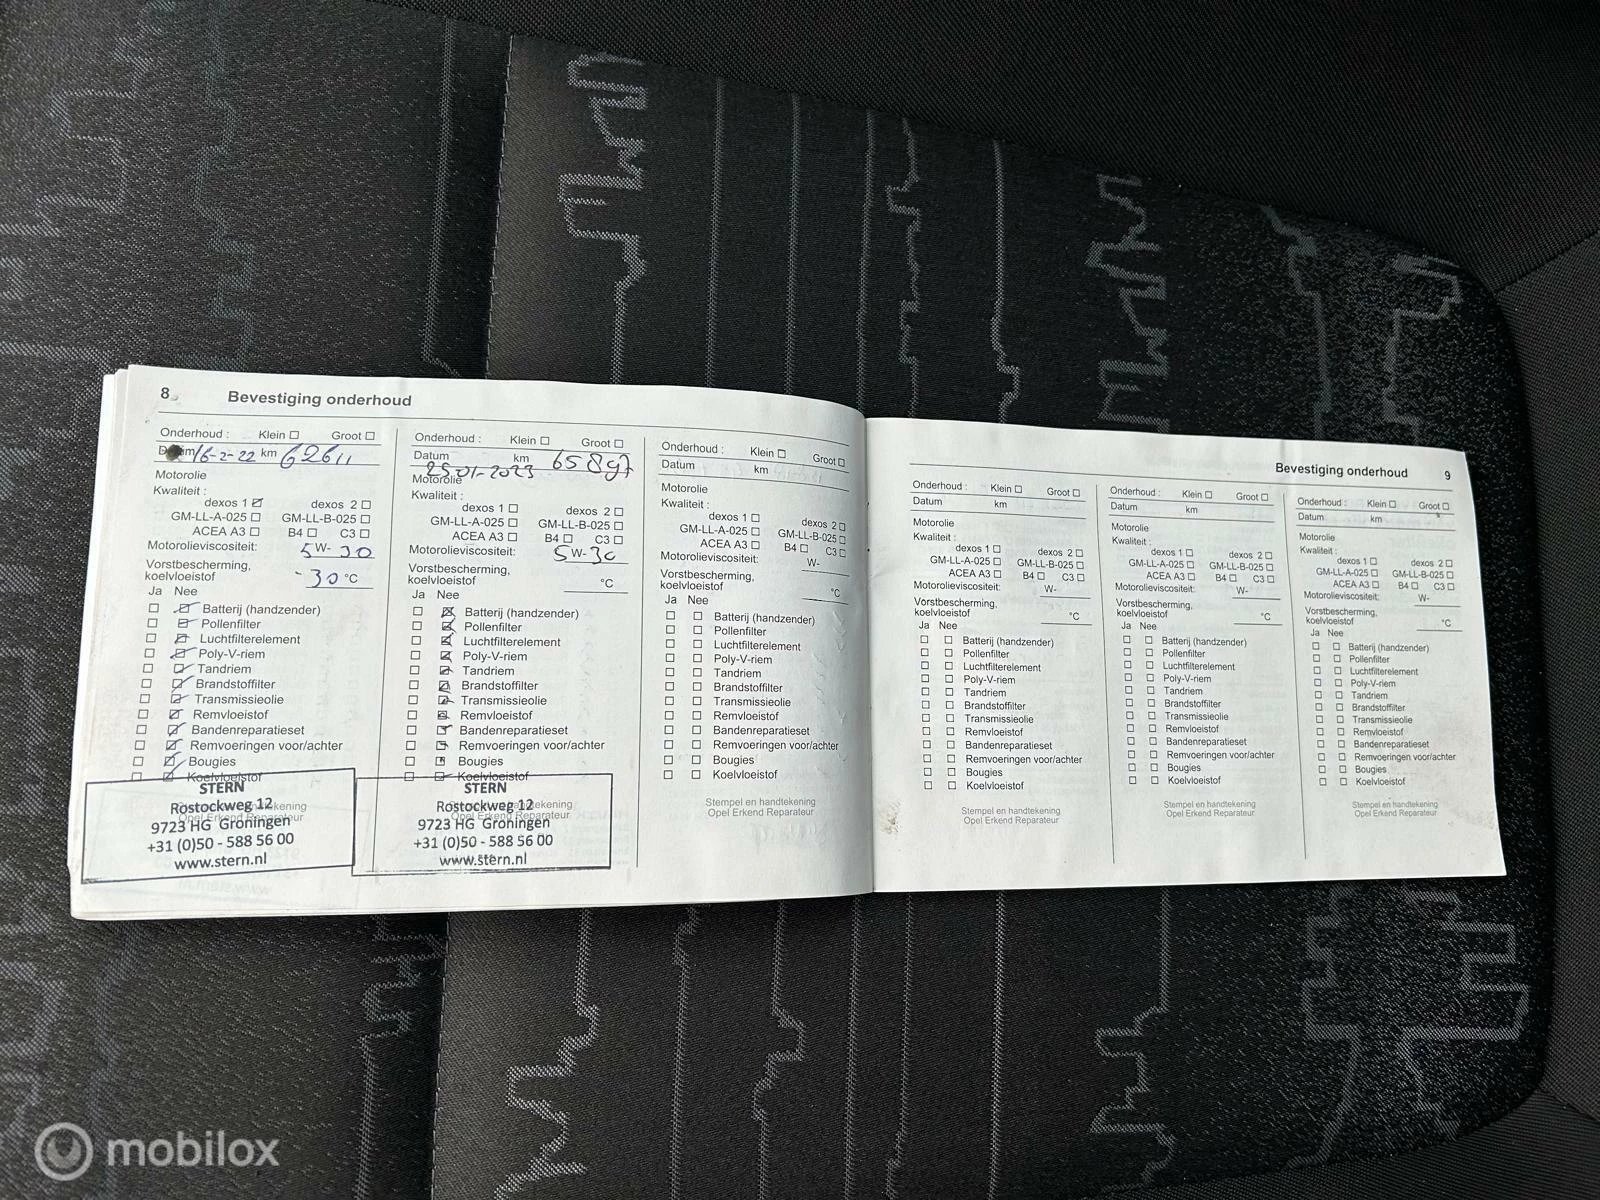 8 Bevestiging onderhoud
Onderhoud : Klein Groot
Datum 16-2-22 km 62611
Motorolie
Kwaliteit :
dexos 1 dexos 2
GM-LL-A-025 GM-LL-B-025
ACEA A3 B4 C3
Motorolieviscositeit: 5W-30
Vorstbescherming,
koelvloeistof -30 °C
Ja Nee
Batterij (handzender)
Pollenfilter
Luchtfilterelement
Poly-V-riem
Tandriem
Brandstoffilter
Transmissieolie
Remvloeistof
Bandenreparatieset
Remvoeringen voor/achter
Bougies
Koelvloeistof
STERN
Rostockweg 12
9723 HG Groningen
+31 (0)50 - 588 56 00
www.stern.nl
Onderhoud : Klein Groot
Datum 25-01-2023 km 65897
Motorolie
Kwaliteit :
dexos 1 dexos 2
GM-LL-A-025 GM-LL-B-025
ACEA A3 B4 C3
Motorolieviscositeit: 5W-30
Vorstbescherming,
koelvloeistof °C
Ja Nee
Batterij (handzender)
Pollenfilter
Luchtfilterelement
Poly-V-riem
Tandriem
Brandstoffilter
Transmissieolie
Remvloeistof
Bandenreparatieset
Remvoeringen voor/achter
Bougies
Koelvloeistof
STERN
Rostockweg 12
9723 HG Groningen
+31 (0)50 - 588 56 00
www.stern.nl
Onderhoud : Klein Groot
Datum km
Motorolie
Kwaliteit :
dexos 1 dexos 2
GM-LL-A-025 GM-LL-B-025
ACEA A3 B4 C3
Motorolieviscositeit: W-
Vorstbescherming,
koelvloeistof °C
Ja Nee
Batterij (handzender)
Pollenfilter
Luchtfilterelement
Poly-V-riem
Tandriem
Brandstoffilter
Transmissieolie
Remvloeistof
Bandenreparatieset
Remvoeringen voor/achter
Bougies
Koelvloeistof
Stempel en handtekening
Opel Erkend Reparateur
Bevestiging onderhoud 9
Onderhoud : Klein Groot
Datum km
Motorolie
Kwaliteit :
dexos 1 dexos 2
GM-LL-A-025 GM-LL-B-025
ACEA A3 B4 C3
Motorolieviscositeit: W-
Vorstbescherming,
koelvloeistof °C
Ja Nee
Batterij (handzender)
Pollenfilter
Luchtfilterelement
Poly-V-riem
Tandriem
Brandstoffilter
Transmissieolie
Remvloeistof
Bandenreparatieset
Remvoeringen voor/achter
Bougies
Koelvloeistof
Stempel en handtekening
Opel Erkend Reparateur
Onderhoud : Klein Groot
Datum km
Motorolie
Kwaliteit :
dexos 1 dexos 2
GM-LL-A-025 GM-LL-B-025
ACEA A3 B4 C3
Motorolieviscositeit: W-
Vorstbescherming,
koelvloeistof °C
Ja Nee
Batterij (handzender)
Pollenfilter
Luchtfilterelement
Poly-V-riem
Tandriem
Brandstoffilter
Transmissieolie
Remvloeistof
Bandenreparatieset
Remvoeringen voor/achter
Bougies
Koelvloeistof
Stempel en handtekening
Opel Erkend Reparateur
Onderhoud : Klein Groot
Datum km
Motorolie
Kwaliteit :
dexos 1 dexos 2
GM-LL-A-025 GM-LL-B-025
ACEA A3 B4 C3
Motorolieviscositeit: W-
Vorstbescherming,
koelvloeistof °C
Ja Nee
Batterij (handzender)
Pollenfilter
Luchtfilterelement
Poly-V-riem
Tandriem
Brandstoffilter
Transmissieolie
Remvloeistof
Bandenreparatieset
Remvoeringen voor/achter
Bougies
Koelvloeistof
Stempel en handtekening
Opel Erkend Reparateur
mobilox